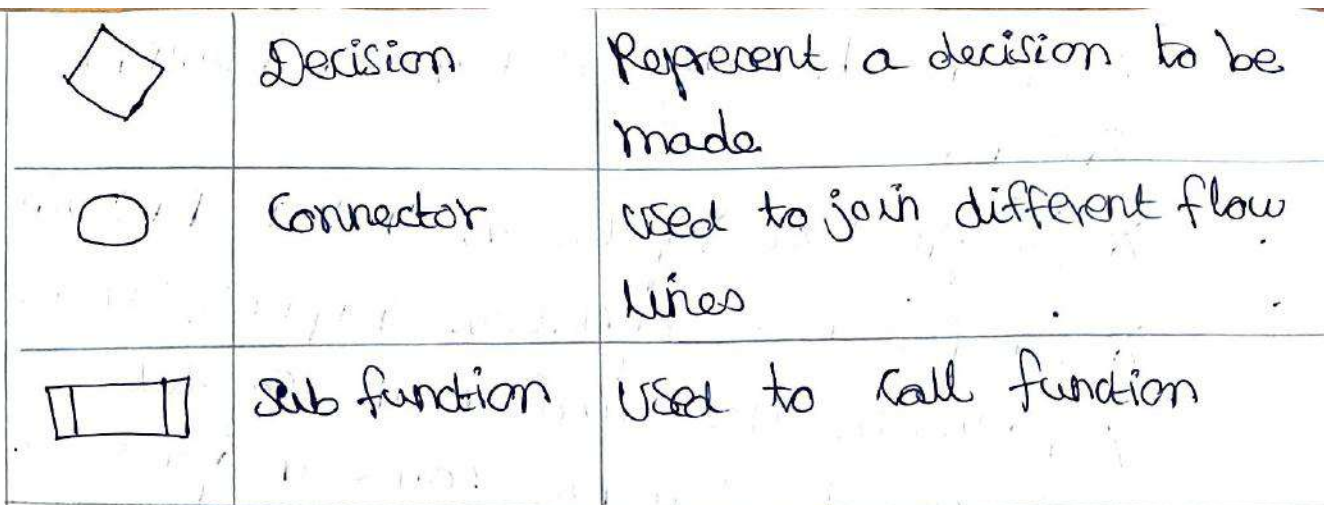 Decision Represent a decision to be
made
Connector used to join different flow
lines
Sub function Used to call function